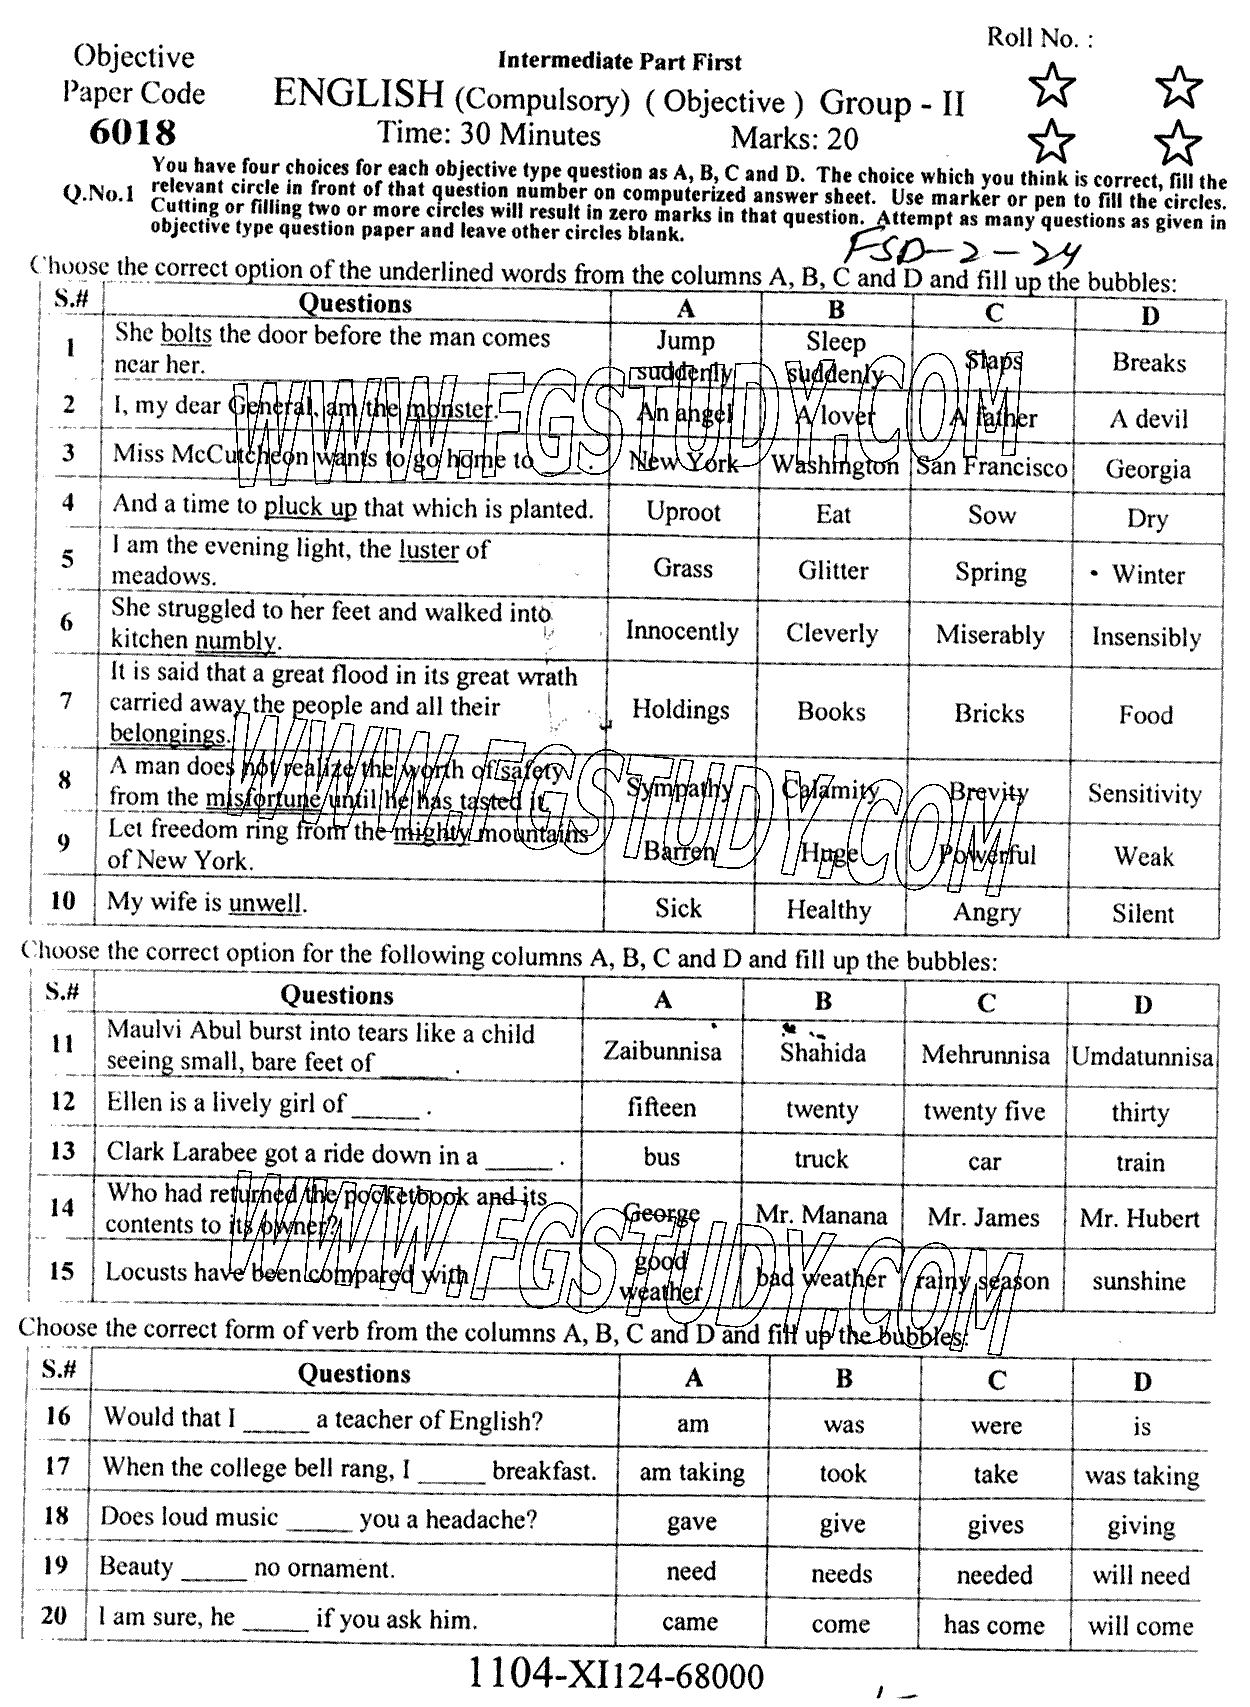 Objective
Paper Code
6018
Intermediate Part First
ENGLISH (Compulsory) ( Objective ) Group - II
Time: 30 Minutes Marks: 20
Roll No. :
Q.No.1 You have four choices for each objective type question as A, B, C and D. The choice which you think is correct, fill the
relevant circle in front of that question number on computerized answer sheet. Use marker or pen to fill the circles.
Cutting or filling two or more circles will result in zero marks in that question. Attempt as many questions as given in
objective type question paper and leave other circles blank.
FSD-2-24
Choose the correct option of the underlined words from the columns A, B, C and D and fill up the bubbles:
S.# Questions A B C D
1 She bolts the door before the man comes
near her. Jump suddenly Sleep suddenly Slaps Breaks
2 I, my dear General, am the monster. An angel A lover A father A devil
3 Miss McCutcheon wants to go home to _____ . New York Washington San Francisco Georgia
4 And a time to pluck up that which is planted. Uproot Eat Sow Dry
5 I am the evening light, the luster of
meadows. Grass Glitter Spring Winter
6 She struggled to her feet and walked into
kitchen numbly. Innocently Cleverly Miserably Insensibly
7 It is said that a great flood in its great wrath
carried away the people and all their
belongings. Holdings Books Bricks Food
8 A man does not realize the worth of safety
from the misfortune until he has tasted it. Sympathy Calamity Brevity Sensitivity
9 Let freedom ring from the mighty mountains
of New York. Barren Huge Powerful Weak
10 My wife is unwell. Sick Healthy Angry Silent
Choose the correct option for the following columns A, B, C and D and fill up the bubbles:
S.# Questions A B C D
11 Maulvi Abul burst into tears like a child
seeing small, bare feet of _____ . Zaibunnisa Shahida Mehrunnisa Umdatunnisa
12 Ellen is a lively girl of _____ . fifteen twenty twenty five thirty
13 Clark Larabee got a ride down in a _____ . bus truck car train
14 Who had returned the pocketbook and its
contents to its owner? George Mr. Manana Mr. James Mr. Hubert
15 Locusts have been compared with _____ . good weather bad weather rainy season sunshine
Choose the correct form of verb from the columns A, B, C and D and fill up the bubbles:
S.# Questions A B C D
16 Would that I _____ a teacher of English? am was were is
17 When the college bell rang, I _____ breakfast. am taking took take was taking
18 Does loud music _____ you a headache? gave give gives giving
19 Beauty _____ no ornament. need needs needed will need
20 I am sure, he _____ if you ask him. came come has come will come
1104-XI124-68000
WWW.FGSTUDY.COM
WWW.FGSTUDY.COM
WWW.FGSTUDY.COM